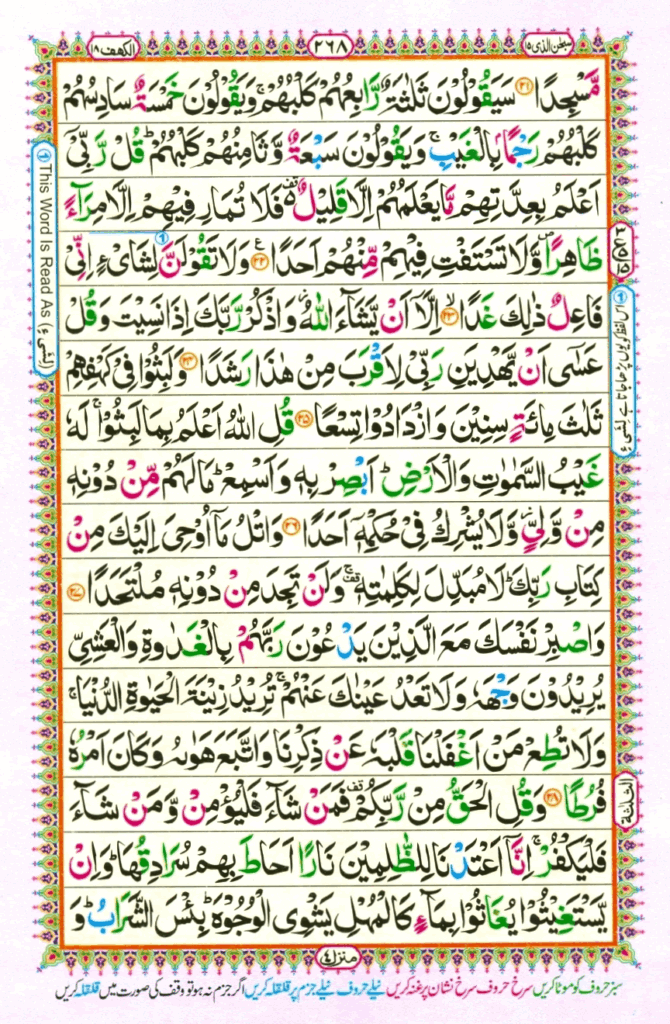 سبحٰن الذی ۱۵
۲٦۸
الکهف ۱۸
مَّسْجِدًا ۝۲۱ سَيَقُوْلُوْنَ ثَلٰثَةٌ رَّابِعُهُمْ كَلْبُهُمْ ۚ وَيَقُوْلُوْنَ خَمْسَةٌ سَادِسُهُمْ
كَلْبُهُمْ رَجْمًاۢ بِالْغَيْبِ ۚ وَيَقُوْلُوْنَ سَبْعَةٌ وَّثَامِنُهُمْ كَلْبُهُمْ ؕ قُلْ رَّبِّیْۤ
اَعْلَمُ بِعِدَّتِهِمْ مَّا يَعْلَمُهُمْ اِلَّا قَلِيْلٌ ۬۫ فَلَا تُمَارِ فِيْهِمْ اِلَّا مِرَآءً
ظَاهِرًا ۪ وَّلَا تَسْتَفْتِ فِيْهِمْ مِّنْهُمْ اَحَدًا ۝۲۲ وَلَا تَقُوْلَنَّ لِشَایْءٍ اِنِّیْ
فَاعِلٌ ذٰلِكَ غَدًا ۝۲۳ اِلَّاۤ اَنْ يَّشَآءَ اللّٰهُ ؗ وَاذْكُرْ رَّبَّكَ اِذَا نَسِيْتَ وَقُلْ
عَسٰۤی اَنْ يَّهْدِيَنِ رَبِّیْ لِاَقْرَبَ مِنْ هٰذَا رَشَدًا ۝۲۴ وَلَبِثُوْا فِیْ كَهْفِهِمْ
ثَلٰثَ مِائَةٍ سِنِيْنَ وَازْدَادُوْا تِسْعًا ۝۲۵ قُلِ اللّٰهُ اَعْلَمُ بِمَا لَبِثُوْا ۚ لَهٗ
غَيْبُ السَّمٰوٰتِ وَالْاَرْضِ ؕ اَبْصِرْ بِهٖ وَاَسْمِعْ ؕ مَا لَهُمْ مِّنْ دُوْنِهٖ
مِنْ وَّلِیٍّ ؗ وَّلَا يُشْرِكُ فِیْ حُكْمِهٖۤ اَحَدًا ۝۲۶ وَاتْلُ مَاۤ اُوْحِیَ اِلَيْكَ مِنْ
كِتَابِ رَبِّكَ ؕ لَا مُبَدِّلَ لِكَلِمٰتِهٖ ۚ۫ وَلَنْ تَجِدَ مِنْ دُوْنِهٖ مُلْتَحَدًا ۝۲۷
وَاصْبِرْ نَفْسَكَ مَعَ الَّذِيْنَ يَدْعُوْنَ رَبَّهُمْ بِالْغَدٰوةِ وَالْعَشِیِّ
يُرِيْدُوْنَ وَجْهَهٗ وَلَا تَعْدُ عَيْنٰكَ عَنْهُمْ ۚ تُرِيْدُ زِيْنَةَ الْحَيٰوةِ الدُّنْيَا ۚ
وَلَا تُطِعْ مَنْ اَغْفَلْنَا قَلْبَهٗ عَنْ ذِكْرِنَا وَاتَّبَعَ هَوٰىهُ وَكَانَ اَمْرُهٗ
فُرُطًا ۝۲۸ وَقُلِ الْحَقُّ مِنْ رَّبِّكُمْ ۫ فَمَنْ شَآءَ فَلْيُؤْمِنْ وَّمَنْ شَآءَ
فَلْيَكْفُرْ ۚ اِنَّاۤ اَعْتَدْنَا لِلظّٰلِمِيْنَ نَارًا اَحَاطَ بِهِمْ سُرَادِقُهَا ؕ وَاِنْ
يَّسْتَغِيْثُوْا يُغَاثُوْا بِمَآءٍ كَالْمُهْلِ يَشْوِی الْوُجُوْهَ ؕ بِئْسَ الشَّرَابُ ؕ وَ
① This Word Is Read As (لِشَیْءٍ)
① اس لفظ کو یوں پڑھا جاتا ہے لِشَیْءٍ
الثلثة
منزل ۴
سبز حروف کو موٹا کریں سرخ حروف سرخ نشان پر غنہ کریں نیلے حروف نیلے جزم پر قلقلہ کریں اگر جزم نہ ہو تو وقف کی صورت میں قلقلہ کریں